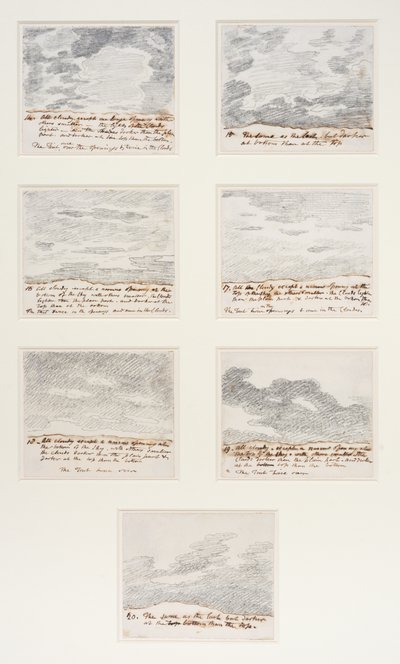 14. All cloudy, except one large opening with
others smaller, the
lighter
than the plain
part and darker at the top than the bottom
The Tint once over the openings & twice in the Clouds.
15 The same as the last, but darker
at bottom than at the top
16 All cloudy except a narrow opening at the
bottom of the sky with others smaller, the Clouds
lighter than the plain part, and darker at the
top than at the bottom.
The tint twice in the openings and once in the Clouds.
17. All cloudy except a narrow opening at the
top of the sky with others smaller. the Clouds lighter
than the plain part & darker at the bottom than
top
The tint twice openings & once in the Clouds.
18. All cloudy except a narrow opening at
the bottom of the sky, with others smaller
the Clouds darker than the plain part &
darker at the top than the bottom
The Tint twice over
19 All cloudy, except a narrow opening at
the top of the sky & with others smaller the
Clouds darker than the plain part. and darker
at the bottom top than the bottom
The Tint twice over
20. The same as the last but darker
at the top bottom than the top.